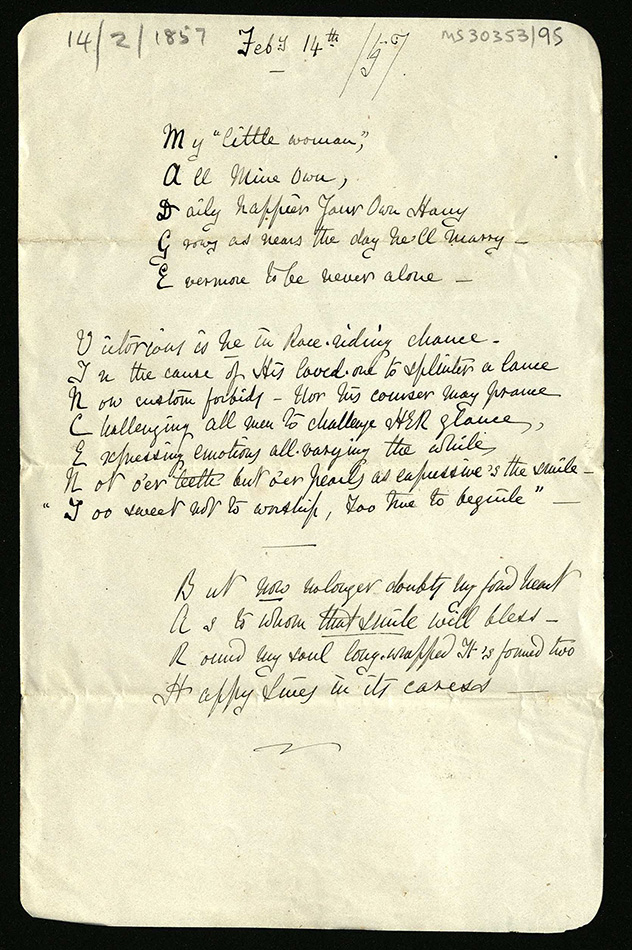 14/2/1857 Feby 14th /57 MS30353/95
My "little woman,"
All Mine Own,
Daily happier Your Own Harry
Grows as nears the day he'll marry –
Evermore to be never alone –
Victorious is he in Race-riding chance –
In the cause of His loved-one to splinter a lance
Now custom forbids – Nor his courser may prance
Challenging all men to challenge HER glance,
Expressing emotions all-varying the while,
Not o'er teeth but o'er pearls as expressive 's the smile –
"Too sweet not to worship, Too true to beguile" –
But now nolonger doubts my fond heart
As to whom that smile will bless –
Round my soul long-wrapped It 's formed two
Happy lives in its caress –